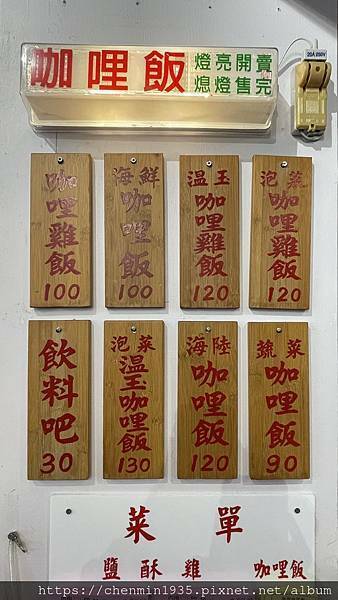 咖哩飯
燈亮開賣
熄燈售完
20A 250V
咖哩雞飯
100
海鮮
咖哩飯
100
溫玉
咖哩雞飯
120
泡菜
咖哩雞飯
120
飲料吧
30
泡菜
溫玉咖哩飯
130
海陸
咖哩飯
120
蔬菜
咖哩飯
90
菜單
鹽酥雞 咖哩飯
https://chenmin1935.pixnet.net/album